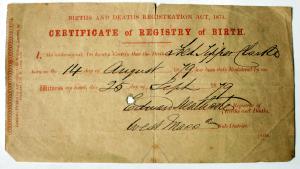 BIRTHS AND DEATHS REGISTRATION ACT, 1874.
CERTIFICATE of REGISTRY of BIRTH.
I, the undersigned, Do hereby Certify that the Birth of
born on the 14 day of August 1879 has been duly Registered by me
Witness my hand, this 25 day of Sept 1879
Edward
Registrar of
Births and Deaths.
West
Sub-District.